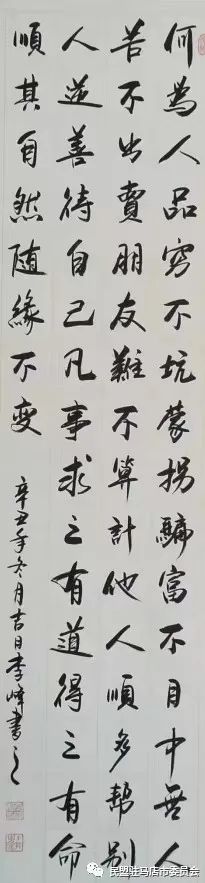 何為人品窮不坑蒙拐騙富不目中無人
苦不出賣朋友難不算計他人順多幫別
人逆善待自己凡事求之有道得之有命
順其自然隨緣不变
辛丑年冬月吉日李峰書之
民盟驻马店市委员会